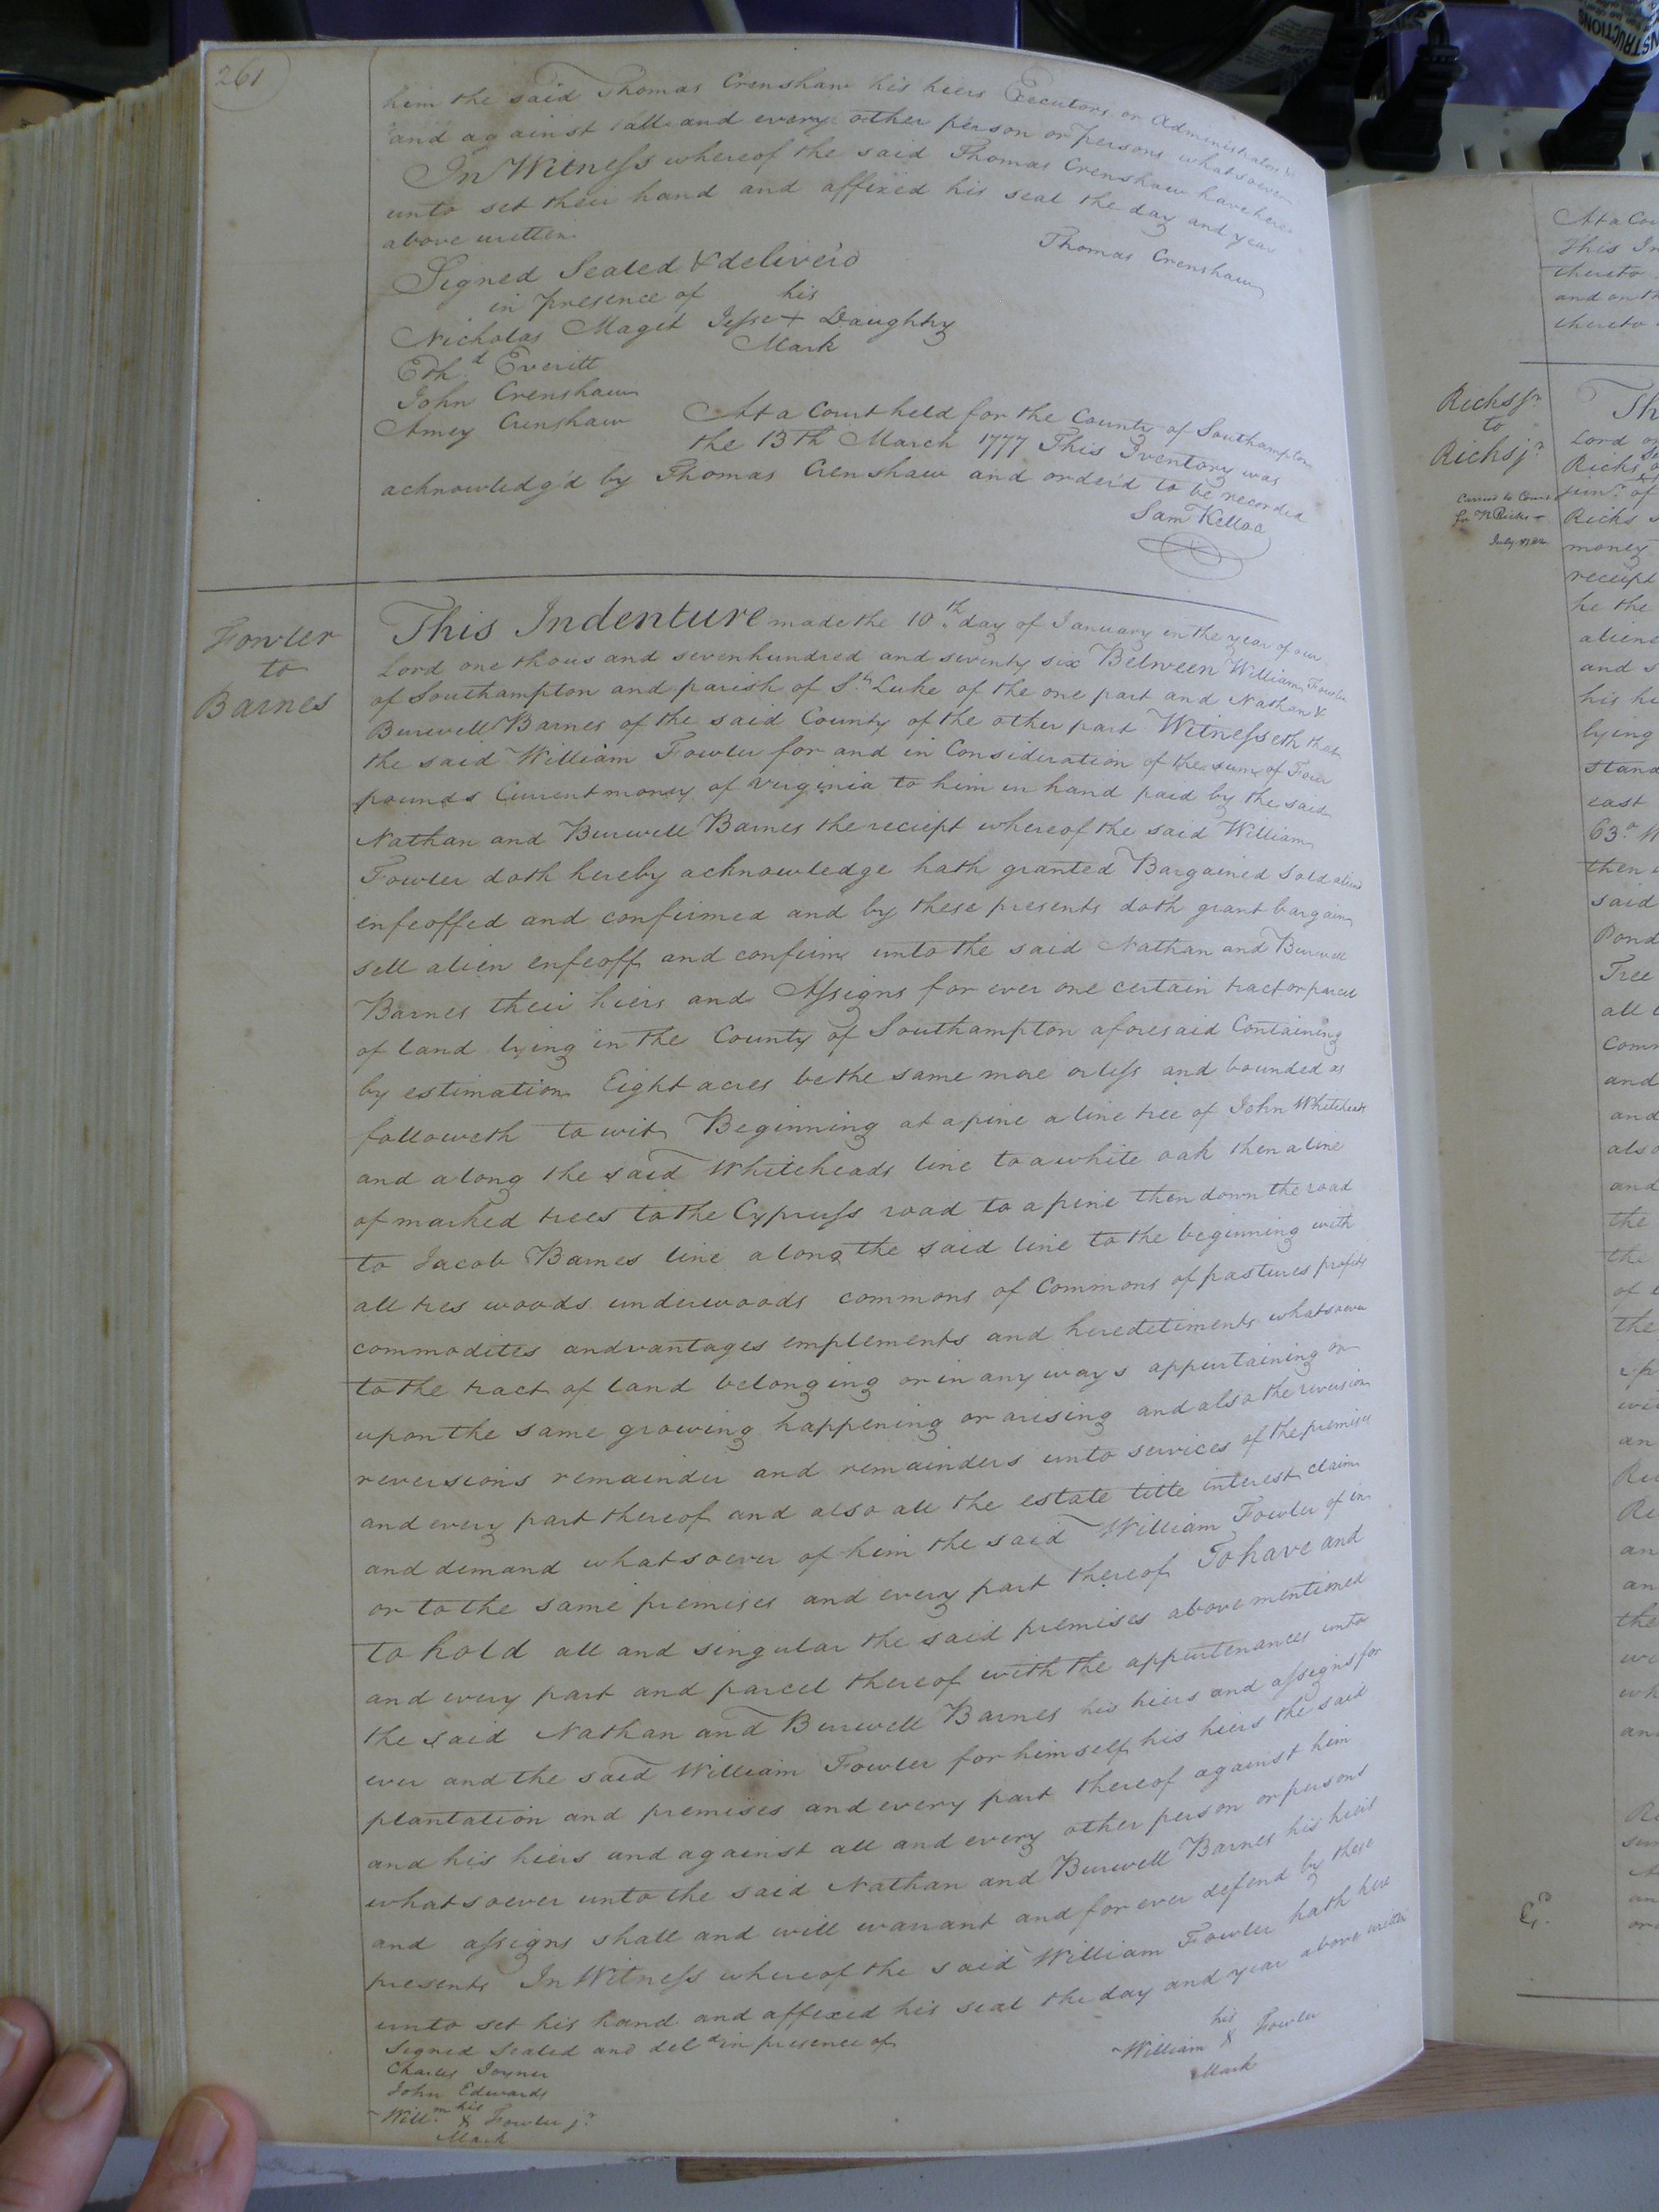 261
him the said Thomas Crenshaw his hiers Executors or Administrators &
and against all and every other person or persons whatsoever
In Witness whereof the said Thomas Crenshaw have here
unto set their hand and affixed his seal the day and year
above written
Thomas Crenshaw
Signed Sealed & deliver'd
in presence of his
Nicholas Maget Jesse + Daughtry
Mark
Eth.d Everitt
John Crenshaw
Amey Crenshaw
At a Court held for the County of Southampton
the 13th March 1777 This Iventory was
acknowledg'd by Thomas Crenshaw and order'd to be recorded
Sam Kelloa
Fowler
to
Barnes
This Indenture made the 10.th day of January in the year of our
Lord one thousand sevenhundred and seventy six Between William Fowler
of Southampton and parish of St. Luke of the one part and Nathan &
Burwell Barnes of the said County of the other part Witnesseth that
the said William Fowler for and in Consideration of the sum of Four
pounds Current money of virginia to him in hand paid by the said
Nathan and Burwell Barnes the reciept whereof the said William
Fowler doth hereby acknowledge hath granted Bargained Sold aliend
enfeoffed and confirmed and by these presents doth grant bargain
sell alien enfeoff and confirm unto the said Nathan and Burwell
Barnes their hiers and Assigns for ever one certain tract or parcel
of land lying in the County of Southampton aforesaid Containing
by estimation Eight acres be the same more or less and bounded as
followeth to wit Beginning at a pine a line tree of John Whiteheads
and along the said Whiteheads line to a white oak then a line
of marked trees to the Cypruss road to a pine then down the road
to Jacob Barnes line along the said line to the beginning with
all tres woods underwoods commons of Commons of pastures profits
commodites andvantages emplements and heredetiments whatsoever
to the tract of land belonging or in any ways appurtaining or
upon the same growing happening or arising and also the reversion
reversions remainder and remainders unto services of the premises
and every part thereof and also all the estate title interest claim
and demand whatsoever of him the said William Fowler of in
or to the same premises and every part thereof To have and
to hold all and singular the said premises above mentioned
and every part and parcel thereof with the appurtenances unto
the said Nathan and Burwell Barnes his hiers and assigns for
ever and the said William Fowler for himself his hiers the said
plantation and premises and every part thereof against him
and his hiers and against all and every other person or persons
whatsoever unto the said Nathan and Burwell Barnes his hiers
and assigns shall and will warrant and for ever defend by these
presents In Witness whereof the said William Fowler hath here
unto set his hand and affixed his seal the day and year above written
Signed Sealed and del.d in presence of
his
William & Fowler
Mark
Charles Joyner
John Edwards
Will.m his & Fowler jr
Mark
At a Cou
This In
thereto
and on th
thereto
Ricks Sr
to
Ricks jr
Carried to Court
for N Ricks
July
Th
Lord
Ricks
junr. of
Ricks
money
receipt
he the
aliene
and s
his hi
lying
stand
east
63.° W
then
said
Pond
Tree
all
Comm
and
and
also
and
the
the
of
the
an
Re
an
an
the
we
wh
an